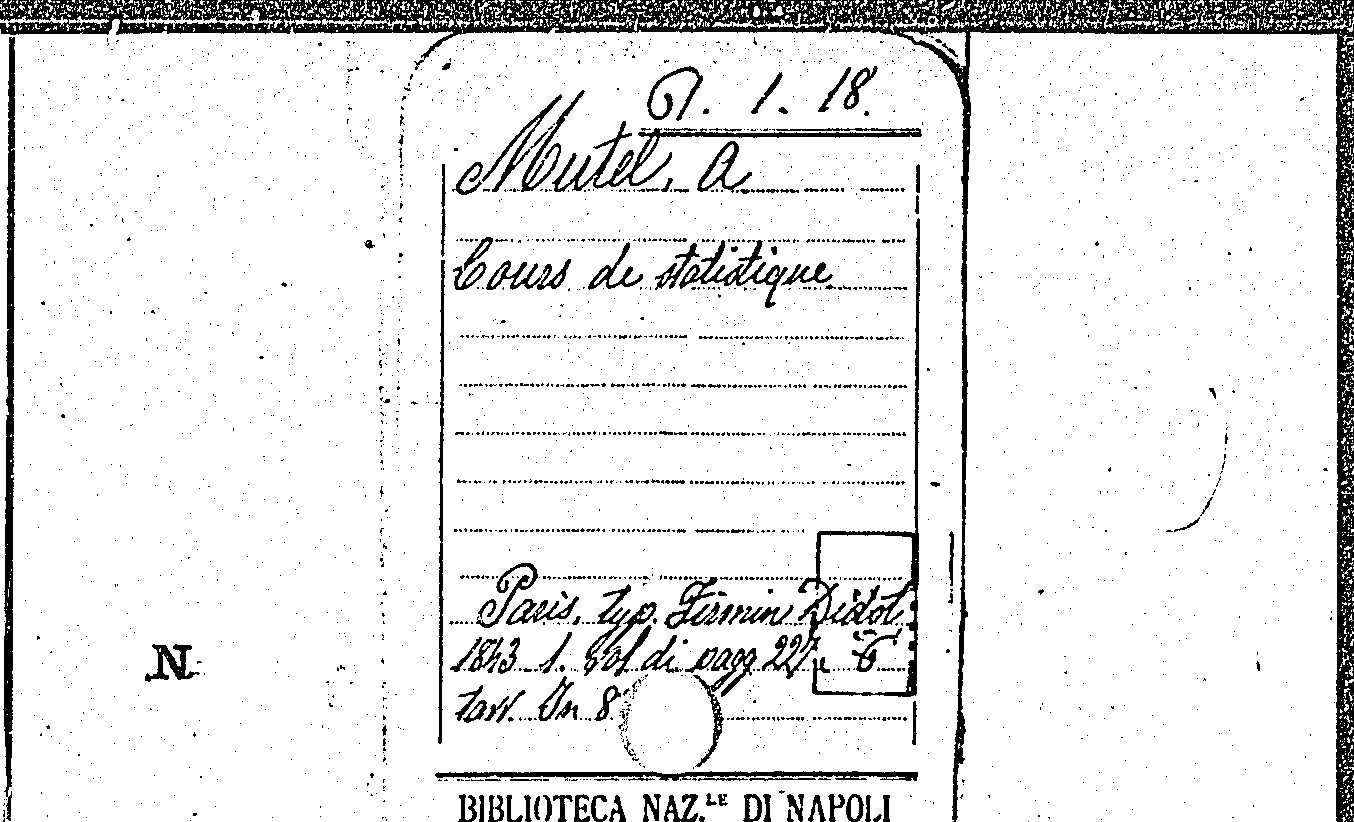 P. 1. 18.
Mutel, A
Cours de statistique
Paris. typ. Firmin Didot
1843 1. vol di pagg 227, 6
tavv. In 8
N
BIBLIOTECA NAZ.LE DI NAPOLI